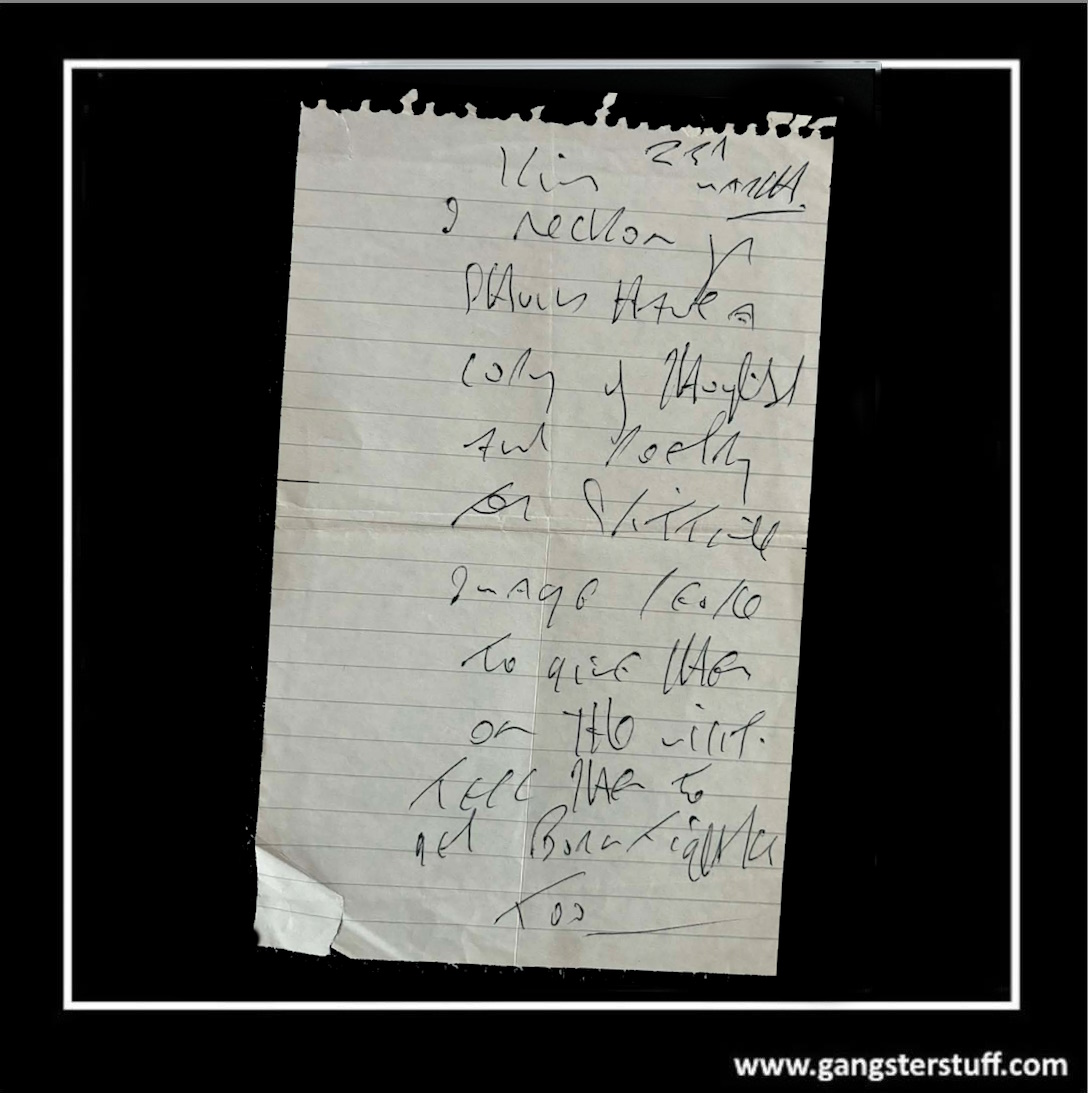 Kim
March.
I reckon
should have a
copy of thoughts
and Poetry
for Spitting
Image People
to give them
on the visit.
Tell them to
get Born Fighter
Too
www.gangsterstuff.com